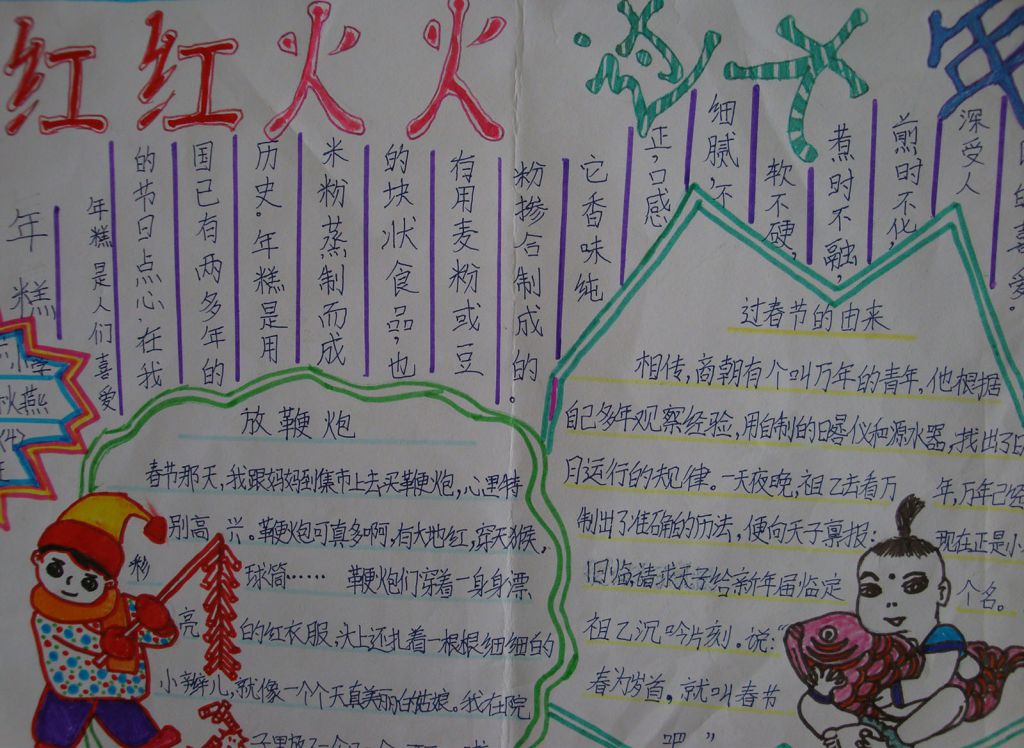 红红火火过大年
年糕
年糕是人们喜爱
的节日点心在我
国已有两多年的
历史。年糕是用
米粉蒸制而成
的块状食品,也
有用麦粉或豆
粉掺合制成的。
它香味纯
正,口感
细腻,不
软不硬,
煮时不融,
煎时不化,
深受人
的喜爱。
小学
秋燕
放鞭炮
春节那天,我跟妈妈到集市上去买鞭炮,心里特
别高兴。鞭炮可真多啊,有大地红,穿天猴,
彩球筒……鞭炮们穿着一身身漂
亮的红衣服,头上还扎着一根根细细白的
小辫儿,就像一个个天真美丽的姑娘。我在院
过春节的由来
相传,商朝有个叫万年的青年,他根据
自己多年观察经验,用自制的日晷仪和漏水器,找出了日
月运行的规律。一天夜晚,祖乙去看万年,万年已经
制出了准确的历法,便向天子禀报:现在正是小
旧临请求天子给新年届临定个名。
祖乙沉吟片刻。说:“
春为岁首,就叫春节
吧”